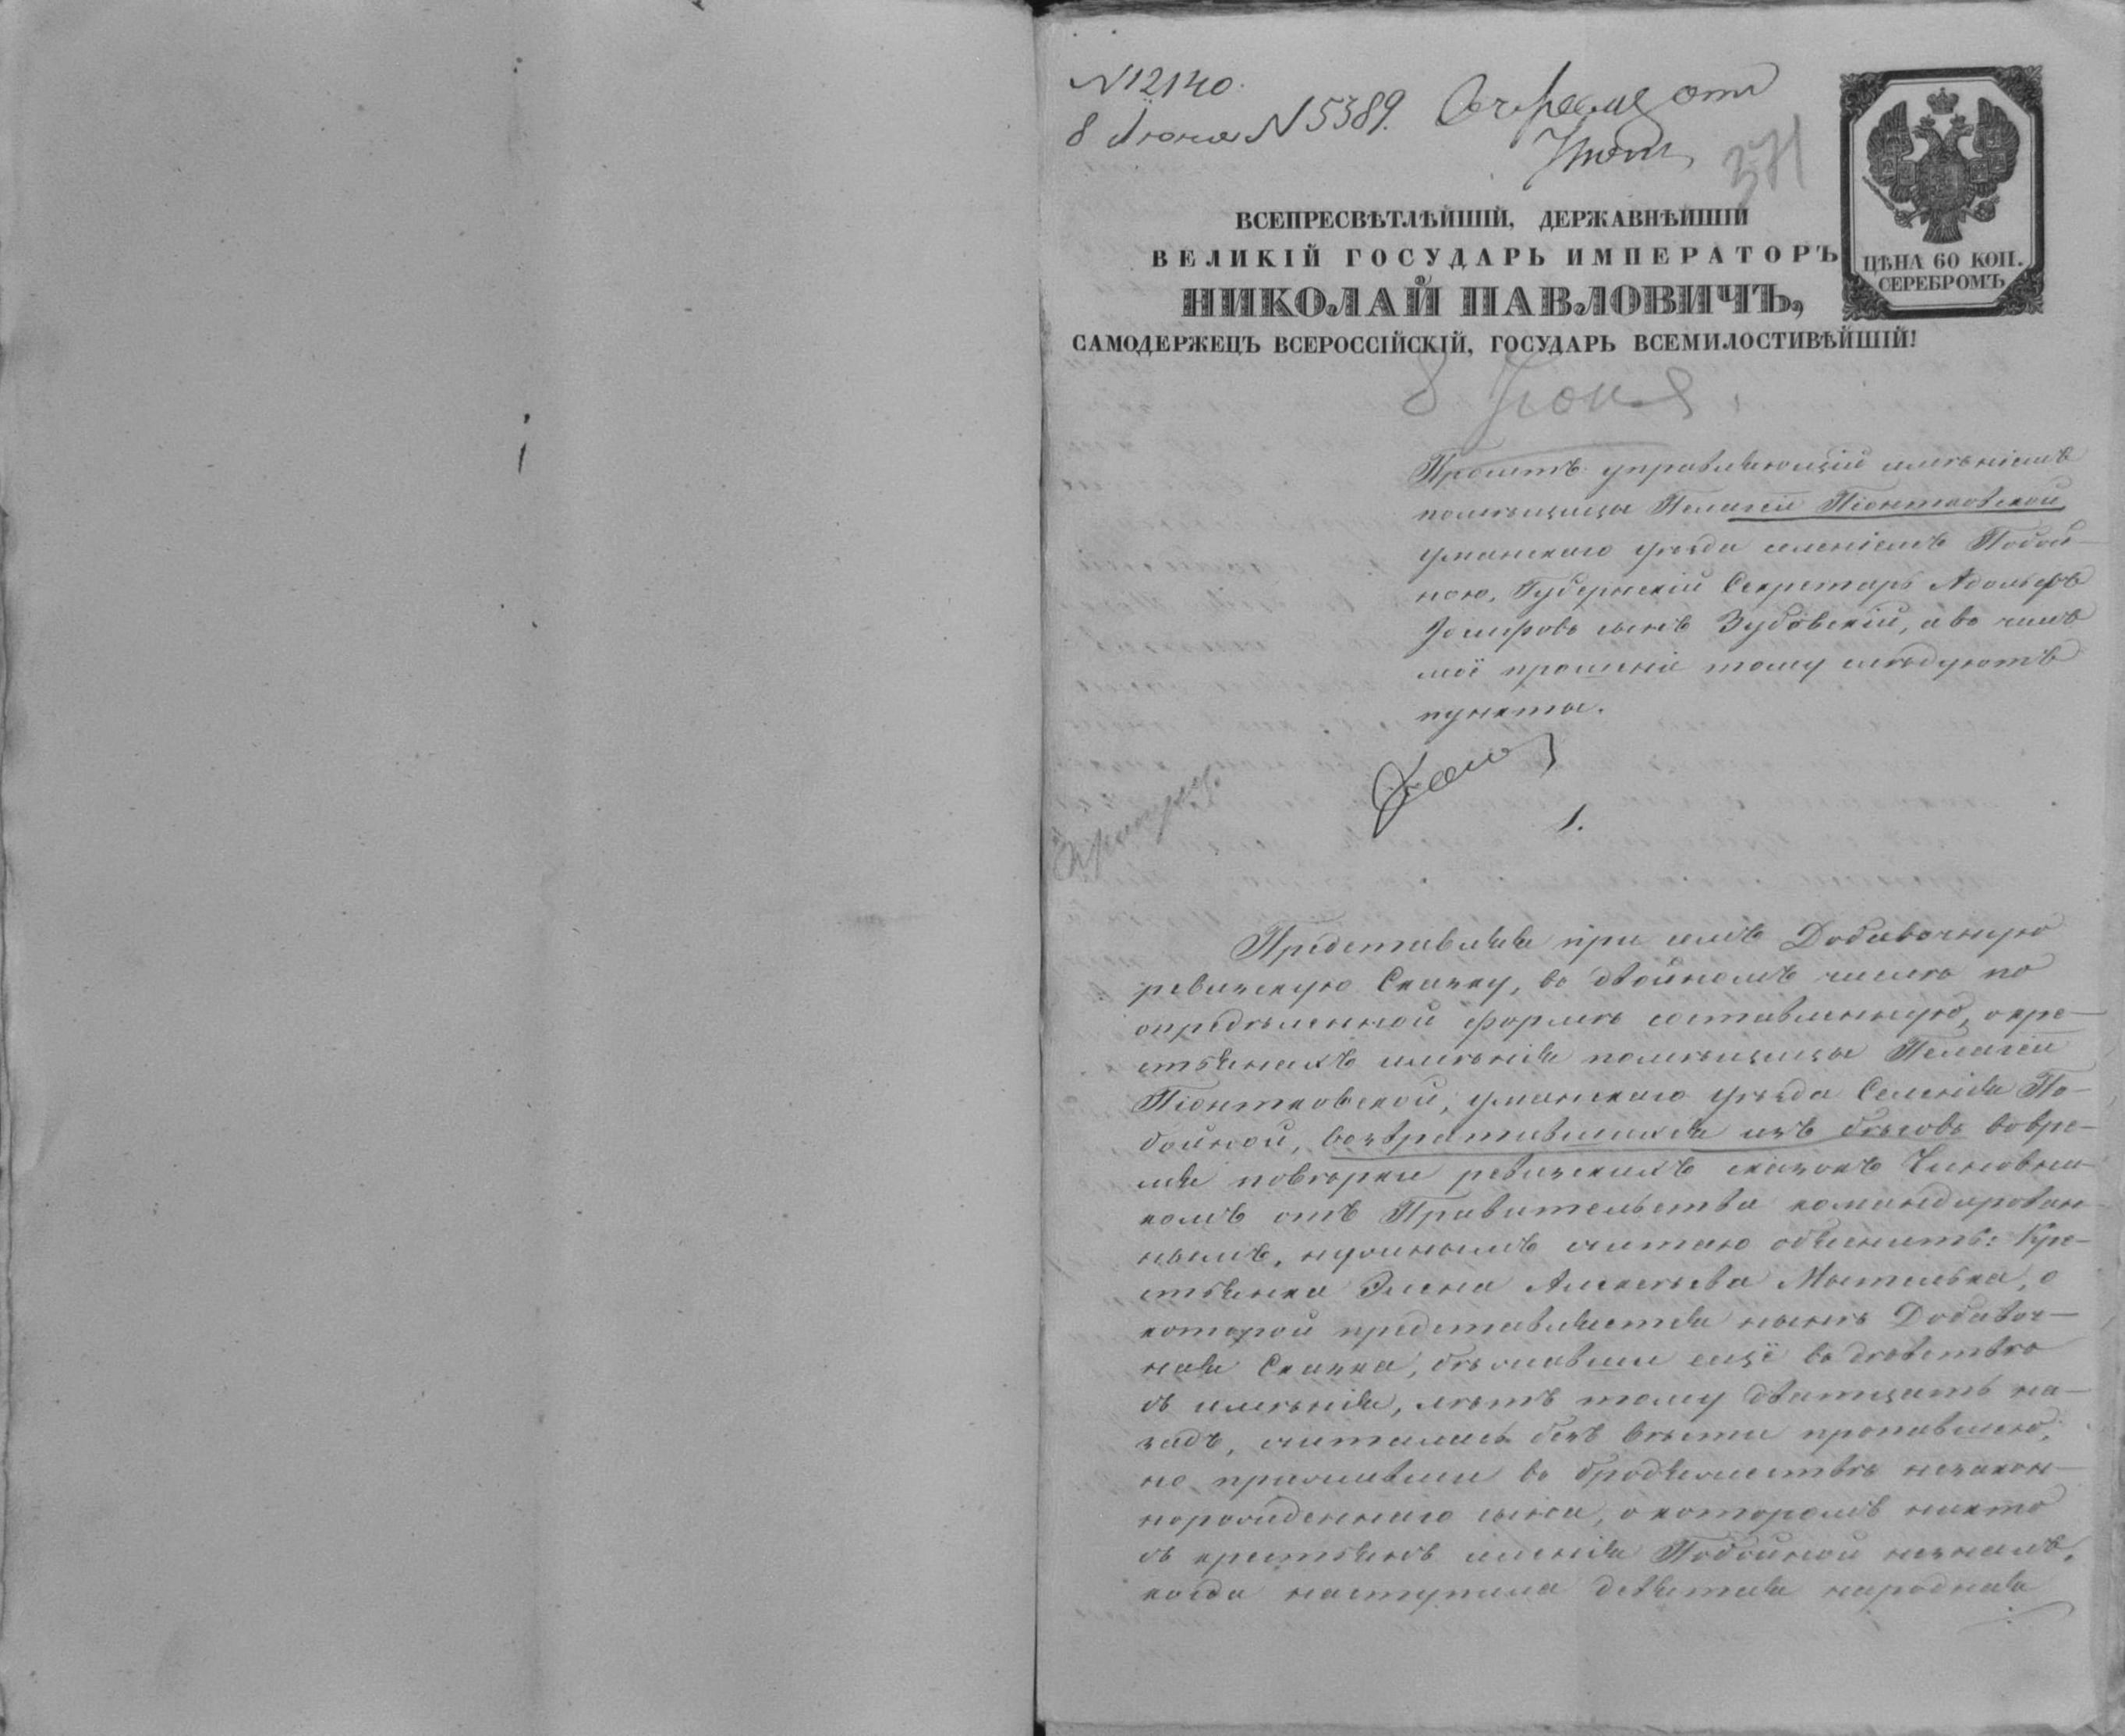 N 12140.
8 Июня N 5389.
371
ЦѢНА 60 КОП.
СЕРЕБРОМЪ
ВСЕПРЕСВѢТЛѢЙШІЙ, ДЕРЖАВНѢЙШІЙ
ВЕЛИКІЙ ГОСУДАРЬ ИМПЕРАТОРЪ
НИКОЛАЙ ПАВЛОВИЧЪ,
САМОДЕРЖЕЦЪ ВСЕРОССІЙСКІЙ, ГОСУДАРЬ ВСЕМИЛОСТИВѢЙШІЙ!
8 Июня
Проситъ управляющій имѣніемъ
помѣщицы Пелагеи Піонтковской
уманскаго уѣзда селеніемъ Побой-
ною, Губернскій Секретарь Адольфъ
сынъ Зубовскій, а въ чемъ
моё прошеніе тому слѣдуютъ
пункты.
1.
Представляя при семъ Добавочную
ревизскую Сказку, въ двойномъ числѣ по
опредѣленной формѣ составленную, о кре-
стьянахъ имѣнія помѣщицы Пелагеи
Піонтковской, уманскаго уѣзда Селенія По-
бойной, возвратившихся изъ бѣговъ во вре-
мя повѣрки ревизскихъ сказокъ Чиновни-
комъ отъ Правительства командирован-
нымъ, нужнымъ считаю объяснить: Кре-
стьянка Елена Алексѣева о
которой представляется нынѣ Добавоч-
ная Сказка, бѣжавши ещё въ дѣвствѣ
съ имѣнія, лѣтъ тому двадцать на-
задъ, считалась безъ вѣсти пропавшею,
но приживши въ бродяжествѣ незакон-
норожденнаго сына, о которомъ никто
съ крестьянъ имѣнія Побойной незналъ,
когда наступила девятая народная